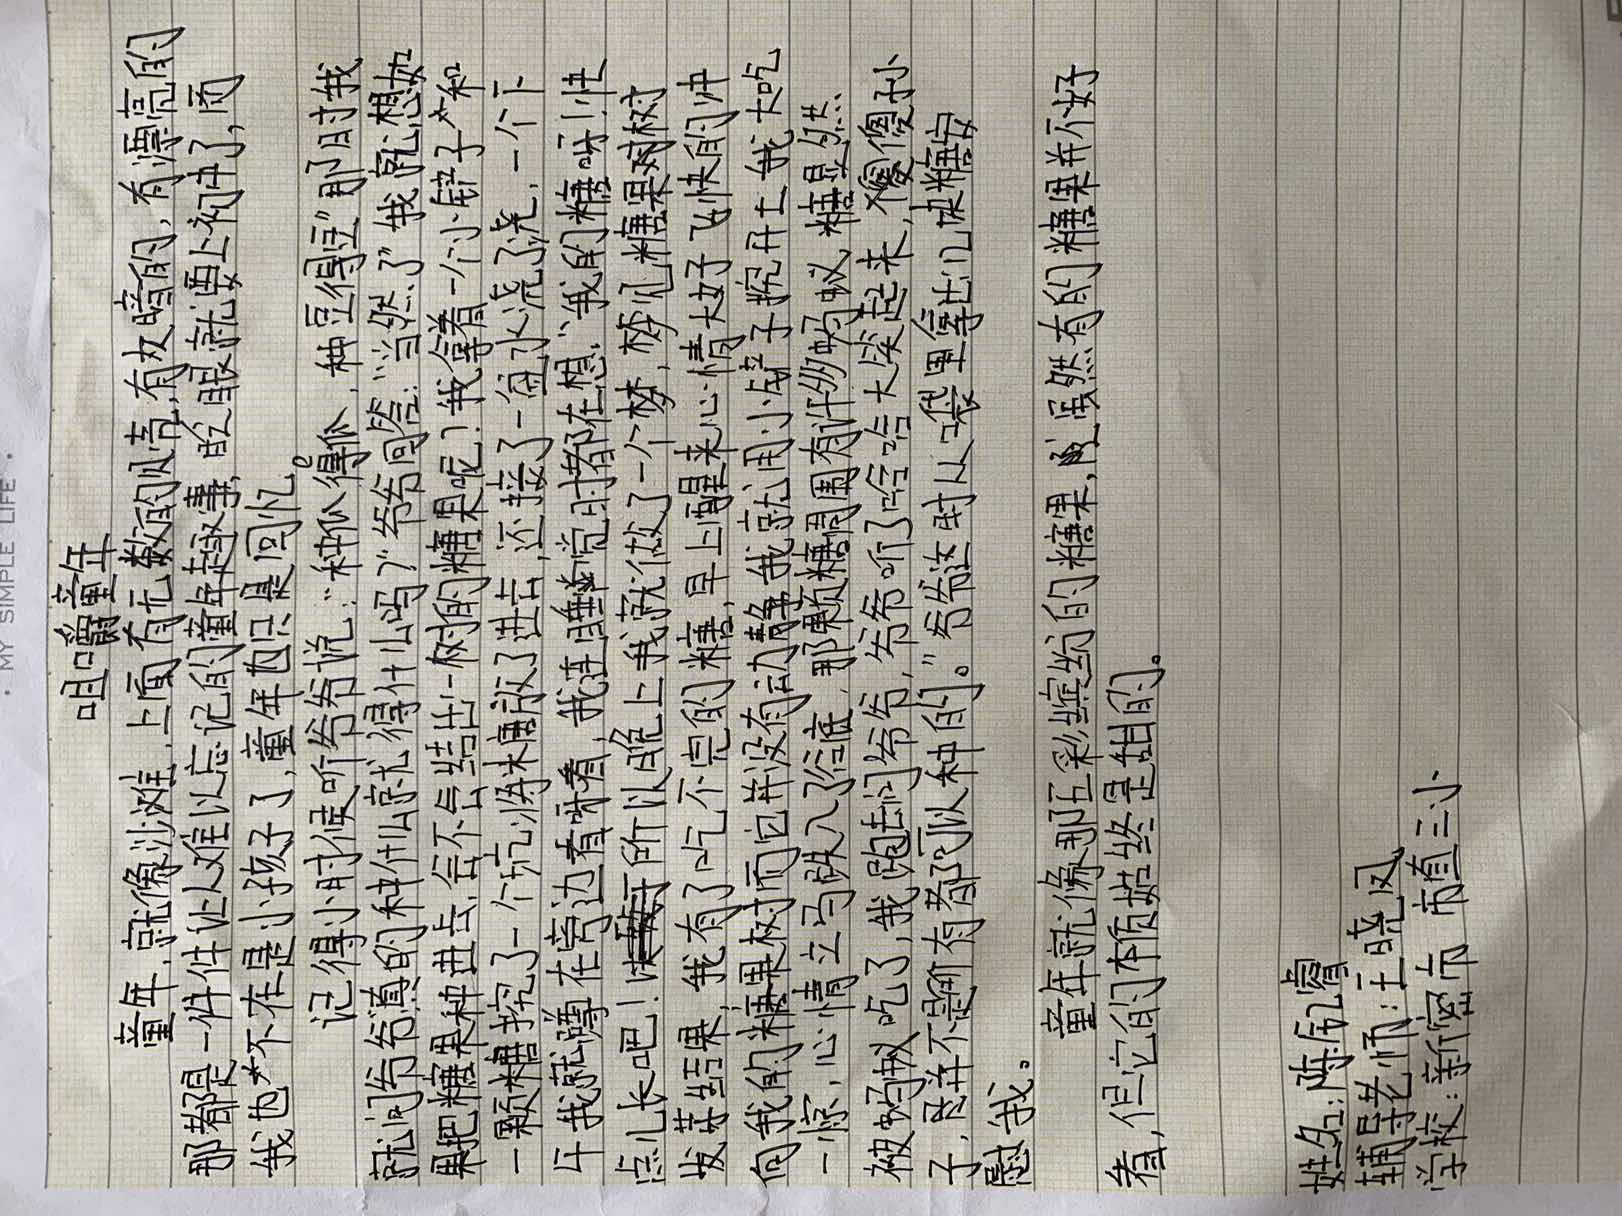 · MY SIMPLE LIFE ·
咀嚼童年
童年,就像沙滩,上面有无数的贝壳,有灰暗的,有漂亮的
那都是一件件让人难以忘记的童年趣事,眨眼就要上初中了,而
我也不在是小孩子了,童年也只是回忆。
记得小时候听爷爷说:“种瓜得瓜,种豆得豆”那时我
就问爷爷真的种什么就得什么吗?”爷爷回答:“当然了”我就想如
果把糖果种进去,会不会结出一树的糖果呢?我拿着一个小铲子和
一颗糖挖了一个坑将糖放了进去,还接了一盆水浇了浇,一个下
午我就蹲在旁边看呀看,我连睡觉时都在想:“我的糖呀!快
点儿长吧!所以晚上我就做了一个梦,梦见糖果树
拔芽结果,我有了吃不完的糖,早上醒来心情大好飞快的冲
向我的糖果树而它并没有动静我就用小铲子挖开土我大吃
一惊,心情立马跌入了谷底,那颗糖周围有许多蚂蚁,糖显然
被蚂蚁吃了,我跑去问爷爷,爷爷听了哈哈大笑起来,傻小
子,是并不是所有都可以种的。”爷爷这时从口袋里拿出几块糖安
慰我。
童年就像那五彩缤纷的糖果,虽然有的糖果并不好
看,但它的本质始终是甜的。
姓名:陈厉睿
辅导老师:王晓凤
学校:新密市市直三小